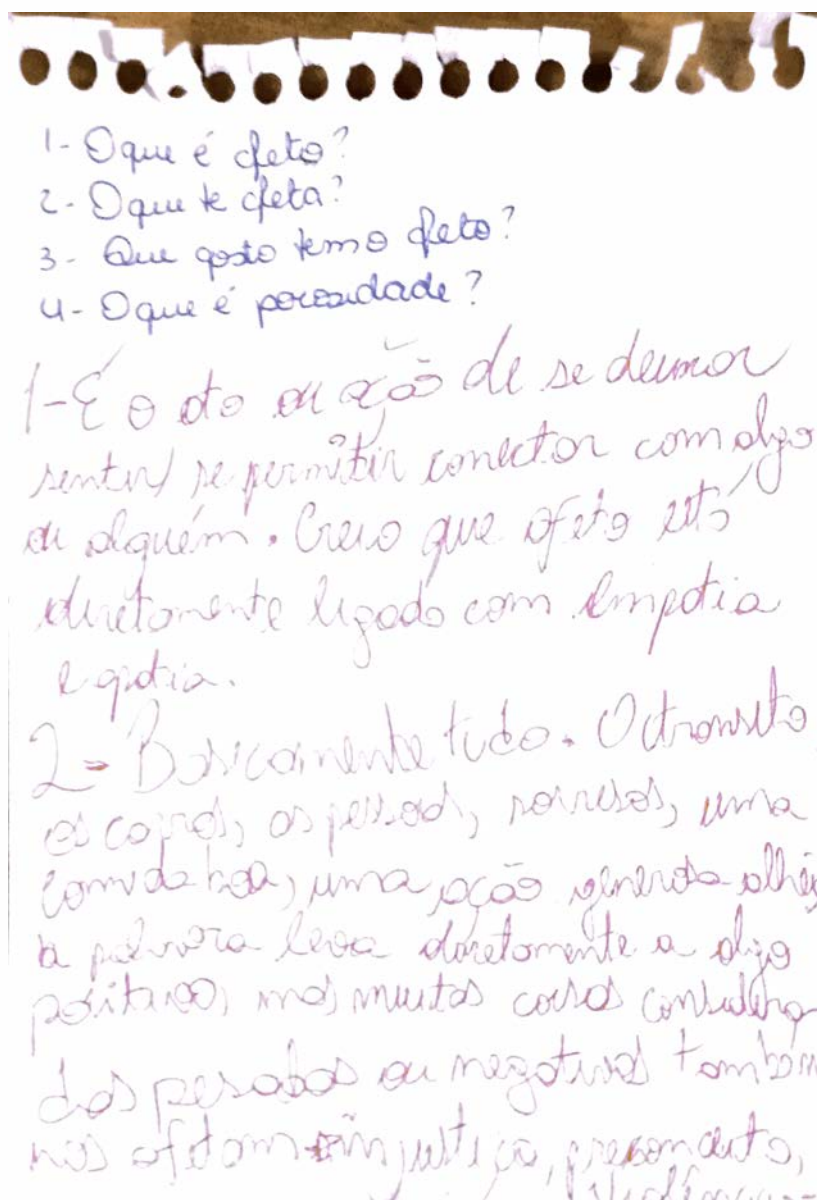 1- O que é afeto?
2- O que te afeta?
3- Que gosto tem o afeto?
4- O que é porosidade?
1- É o ato ou ação de se deixar
sentir/ se permitir conectar com algo
ou alguém. Creio que afeto está
diretamente ligado com empatia
e apatia.
2- Basicamente tudo. O transito
os carros, as pessoas, sorrisos, uma
comida boa, uma ação generosa
a palavra leva diretamente a algo
positivo, mas muitas coisas considera
das pesadas ou negativas também
nos afetam injustiça, preconceito,